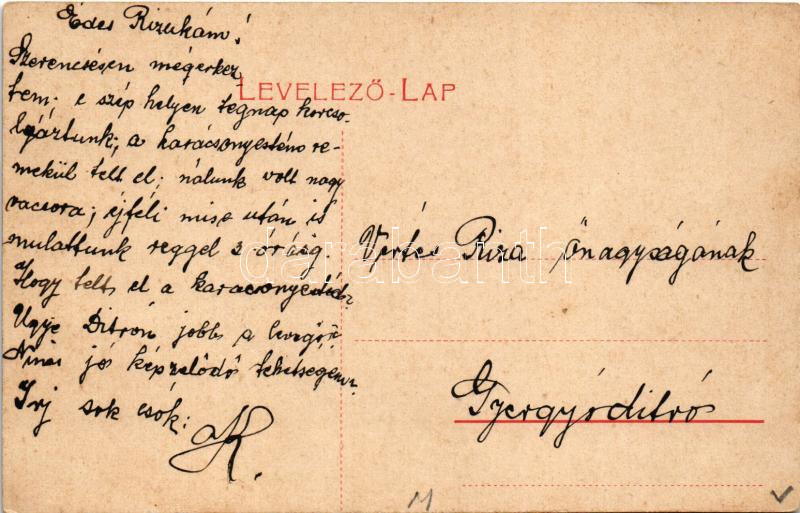 Édes Rizukám!
Szerencsésen megérkez
tem; e szép helyen tegnap korcso-
lyáztunk; a karácsonyestém re-
mekül telt el; nálunk volt nagy
vacsora; éjféli mise után is
mulattunk reggel 3 óráig.
Hogy telt el a karacsonyestéd?
Ugye Ditrón jobb a levegő?
jó képzelődő tehetségem?
Irj sok csók:
K.
LEVELEZŐ-LAP
Vértes Riza önagyságának
Gyergyóditró
darabanth
M